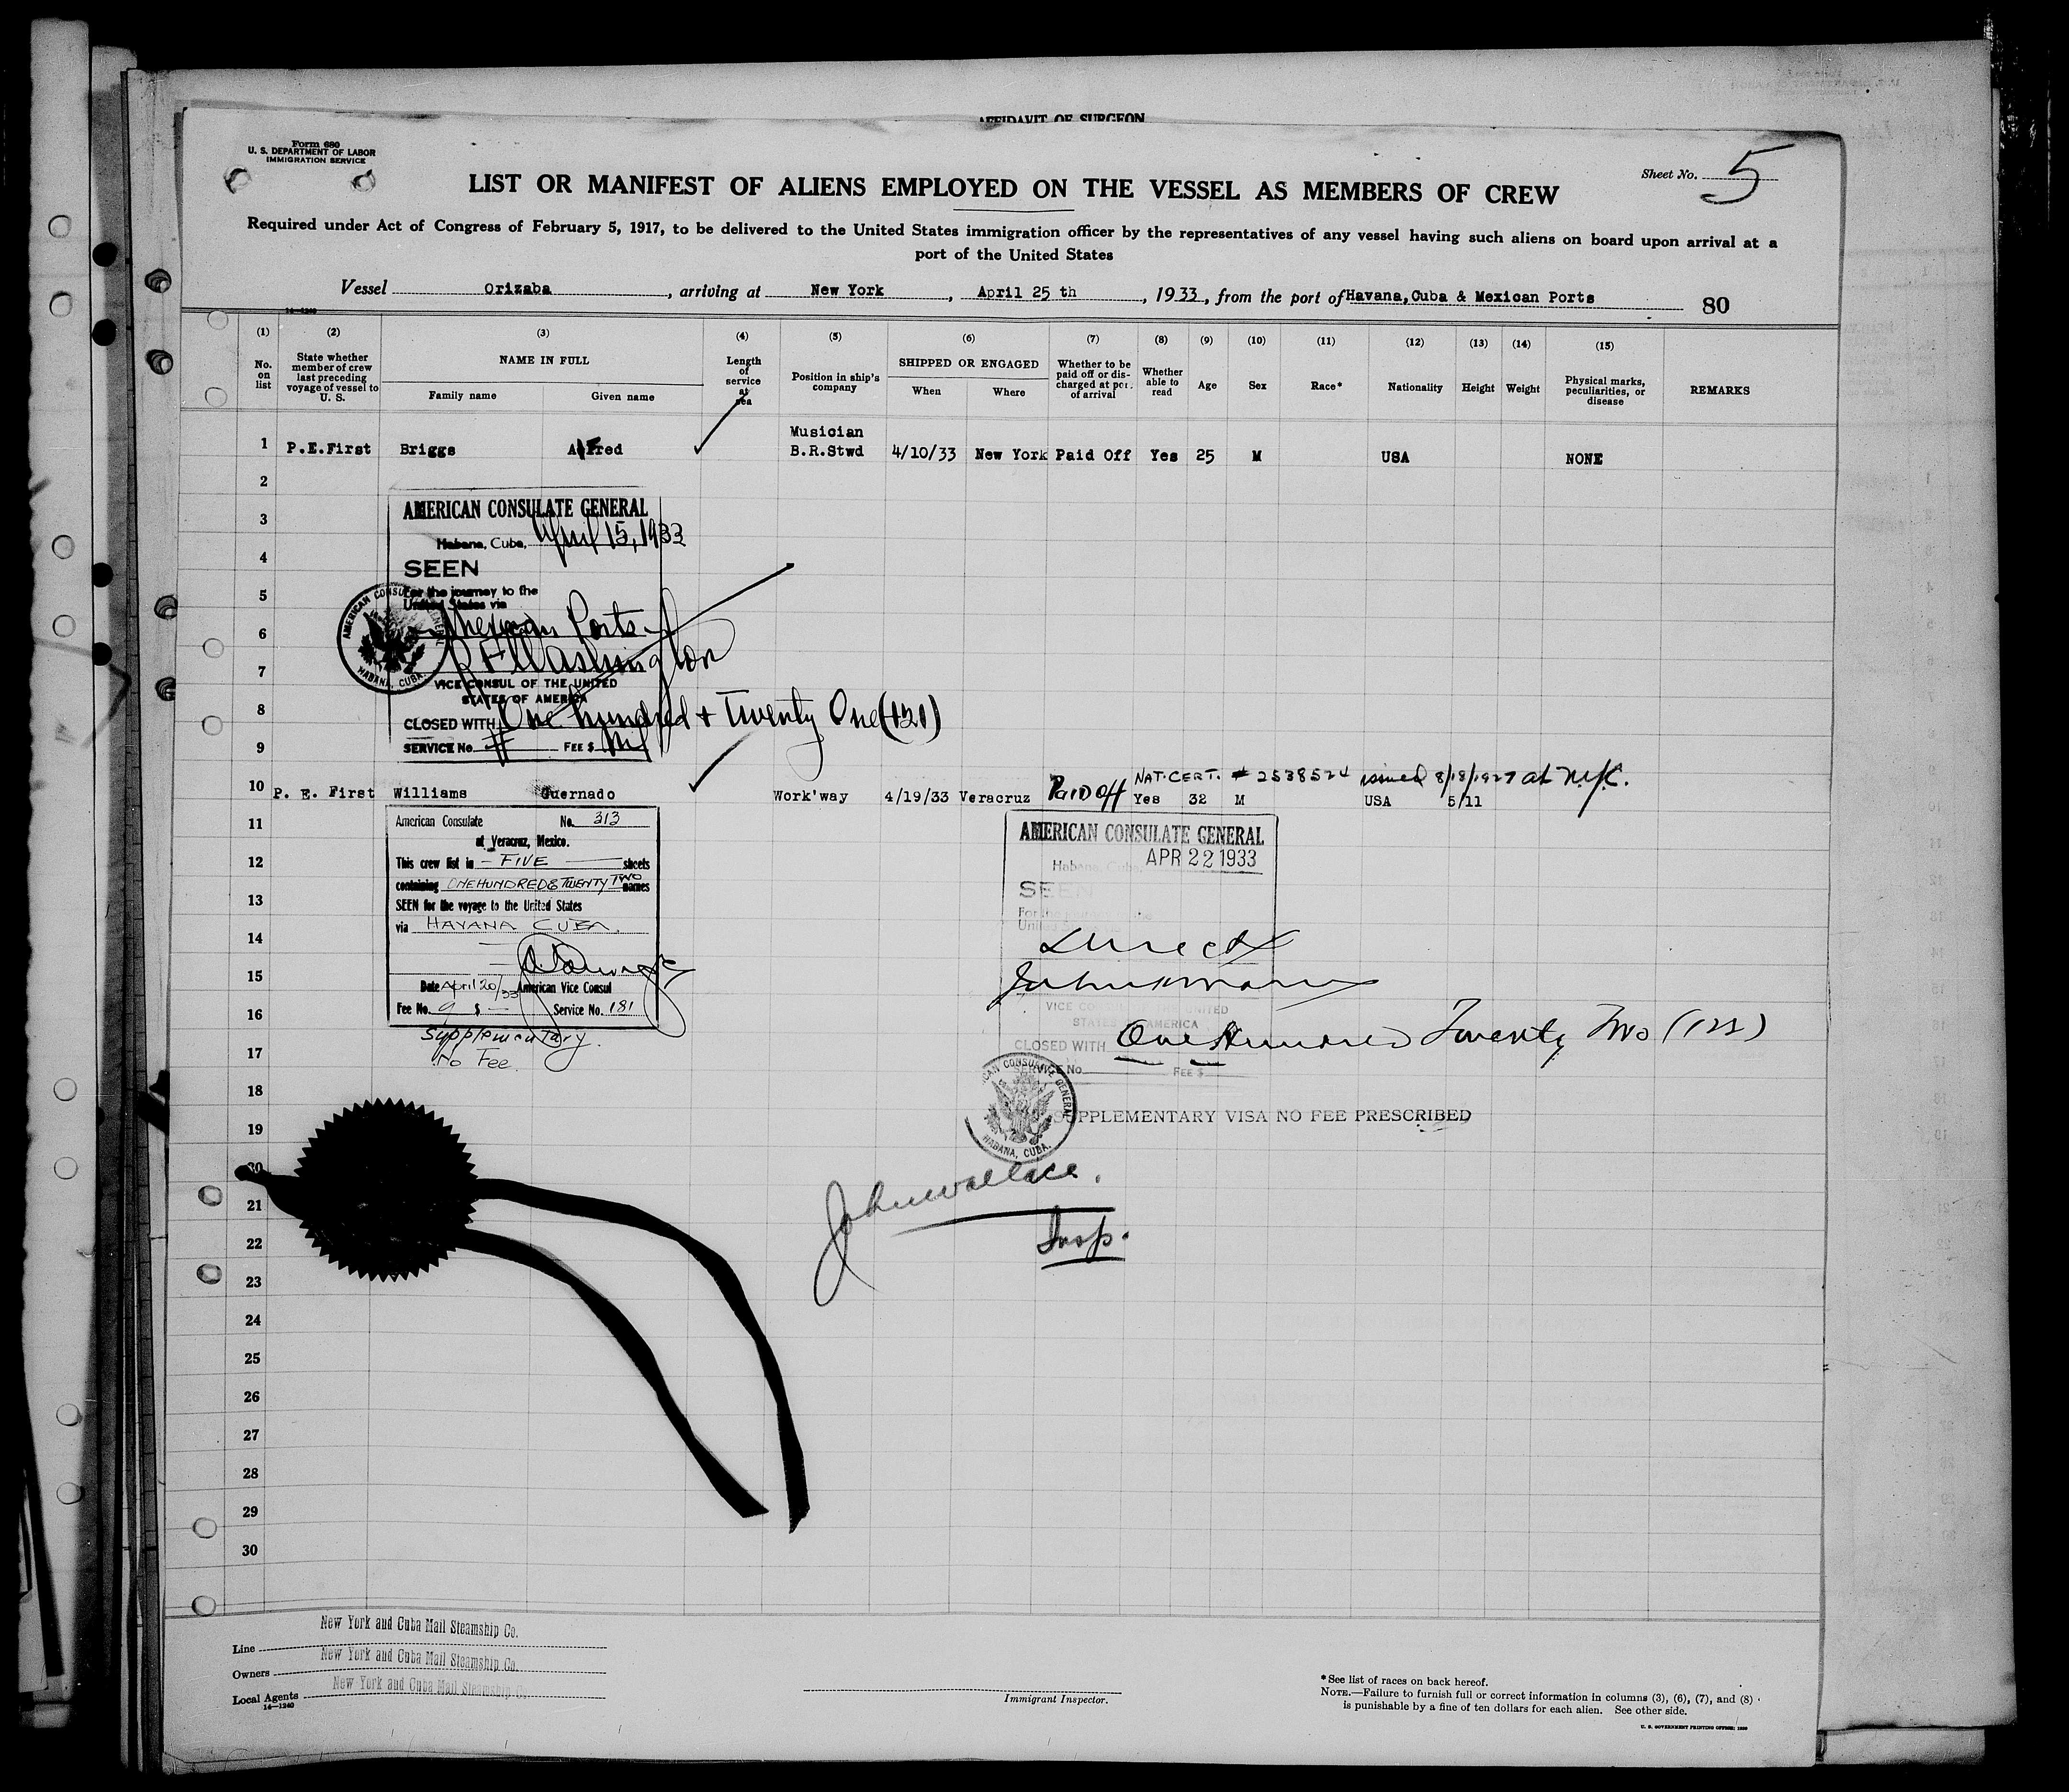 AFFIDAVIT OF SURGEON
Form 680
U. S. DEPARTMENT OF LABOR
IMMIGRATION SERVICE
Sheet No. 5
LIST OR MANIFEST OF ALIENS EMPLOYED ON THE VESSEL AS MEMBERS OF CREW
Required under Act of Congress of February 5, 1917, to be delivered to the United States immigration officer by the representatives of any vessel having such aliens on board upon arrival at a
port of the United States
Vessel Orizaba, arriving at New York, April 25 th, 1933, from the port of Havana, Cuba & Mexican Ports 80
14—1240
(1) (2) (3) (4) (5) (6) (7) (8) (9) (10) (11) (12) (13) (14) (15)
No. on list
State whether member of crew last preceding voyage of vessel to U. S.
NAME IN FULL
Family name Given name
Length of service at sea
Position in ship's company
SHIPPED OR ENGAGED
When Where
Whether to be paid off or discharged at port of arrival
Whether able to read
Age Sex Race* Nationality Height Weight
Physical marks, peculiarities, or disease
REMARKS
Musician
1 P.E.First Briggs Alfred B.R.Stwd 4/10/33 New York Paid Off Yes 25 M USA NONE
2
3
4
5
6
7
8
9
AMERICAN CONSULATE GENERAL
Habana, Cuba, April 15, 1933
SEEN
For the journey to the
United States via
Mexican Ports
AMERICAN CONSULATE GENERAL
HABANA, CUBA.
VICE CONSUL OF THE UNITED
STATES OF AMERICA
CLOSED WITH One hundred + Twenty One (121)
SERVICE No. FEE $ Nil
NAT. CERT. # 2538574 issued 8/18/1927 at N.Y.C.
10 P. E. First Williams Guernado Work'way 4/19/33 Veracruz Paid Off Yes 32 M USA 5/11
11
12
13
14
15
16
17
18
19
20
21
22
23
24
25
26
27
28
29
30
American Consulate No. 313
at Veracruz, Mexico.
This crew list in - FIVE sheets
containing ONE HUNDRED & TWENTY TWO names
SEEN for the voyage to the United States
via HAVANA CUBA.
Date April 20/33 American Vice Consul
Fee No. 9 $ — Service No. 181
Supplementary.
No Fee.
AMERICAN CONSULATE GENERAL
Habana, Cuba, APR 22 1933
SEEN
For the journey to the
United States via
Direct
VICE CONSUL OF THE UNITED
STATES OF AMERICA
CLOSED WITH One Hundred Twenty Two (122)
SERVICE No. FEE $
AMERICAN CONSULATE GENERAL
HABANA, CUBA.
SUPPLEMENTARY VISA NO FEE PRESCRIBED
John Wallace.
Insp.
Line New York and Cuba Mail Steamship Co.
Owners New York and Cuba Mail Steamship Co.
Local Agents New York and Cuba Mail Steamship Co.
14—1240
Immigrant Inspector.
*See list of races on back hereof.
NOTE.—Failure to furnish full or correct information in columns (3), (6), (7), and (8)
is punishable by a fine of ten dollars for each alien. See other side.